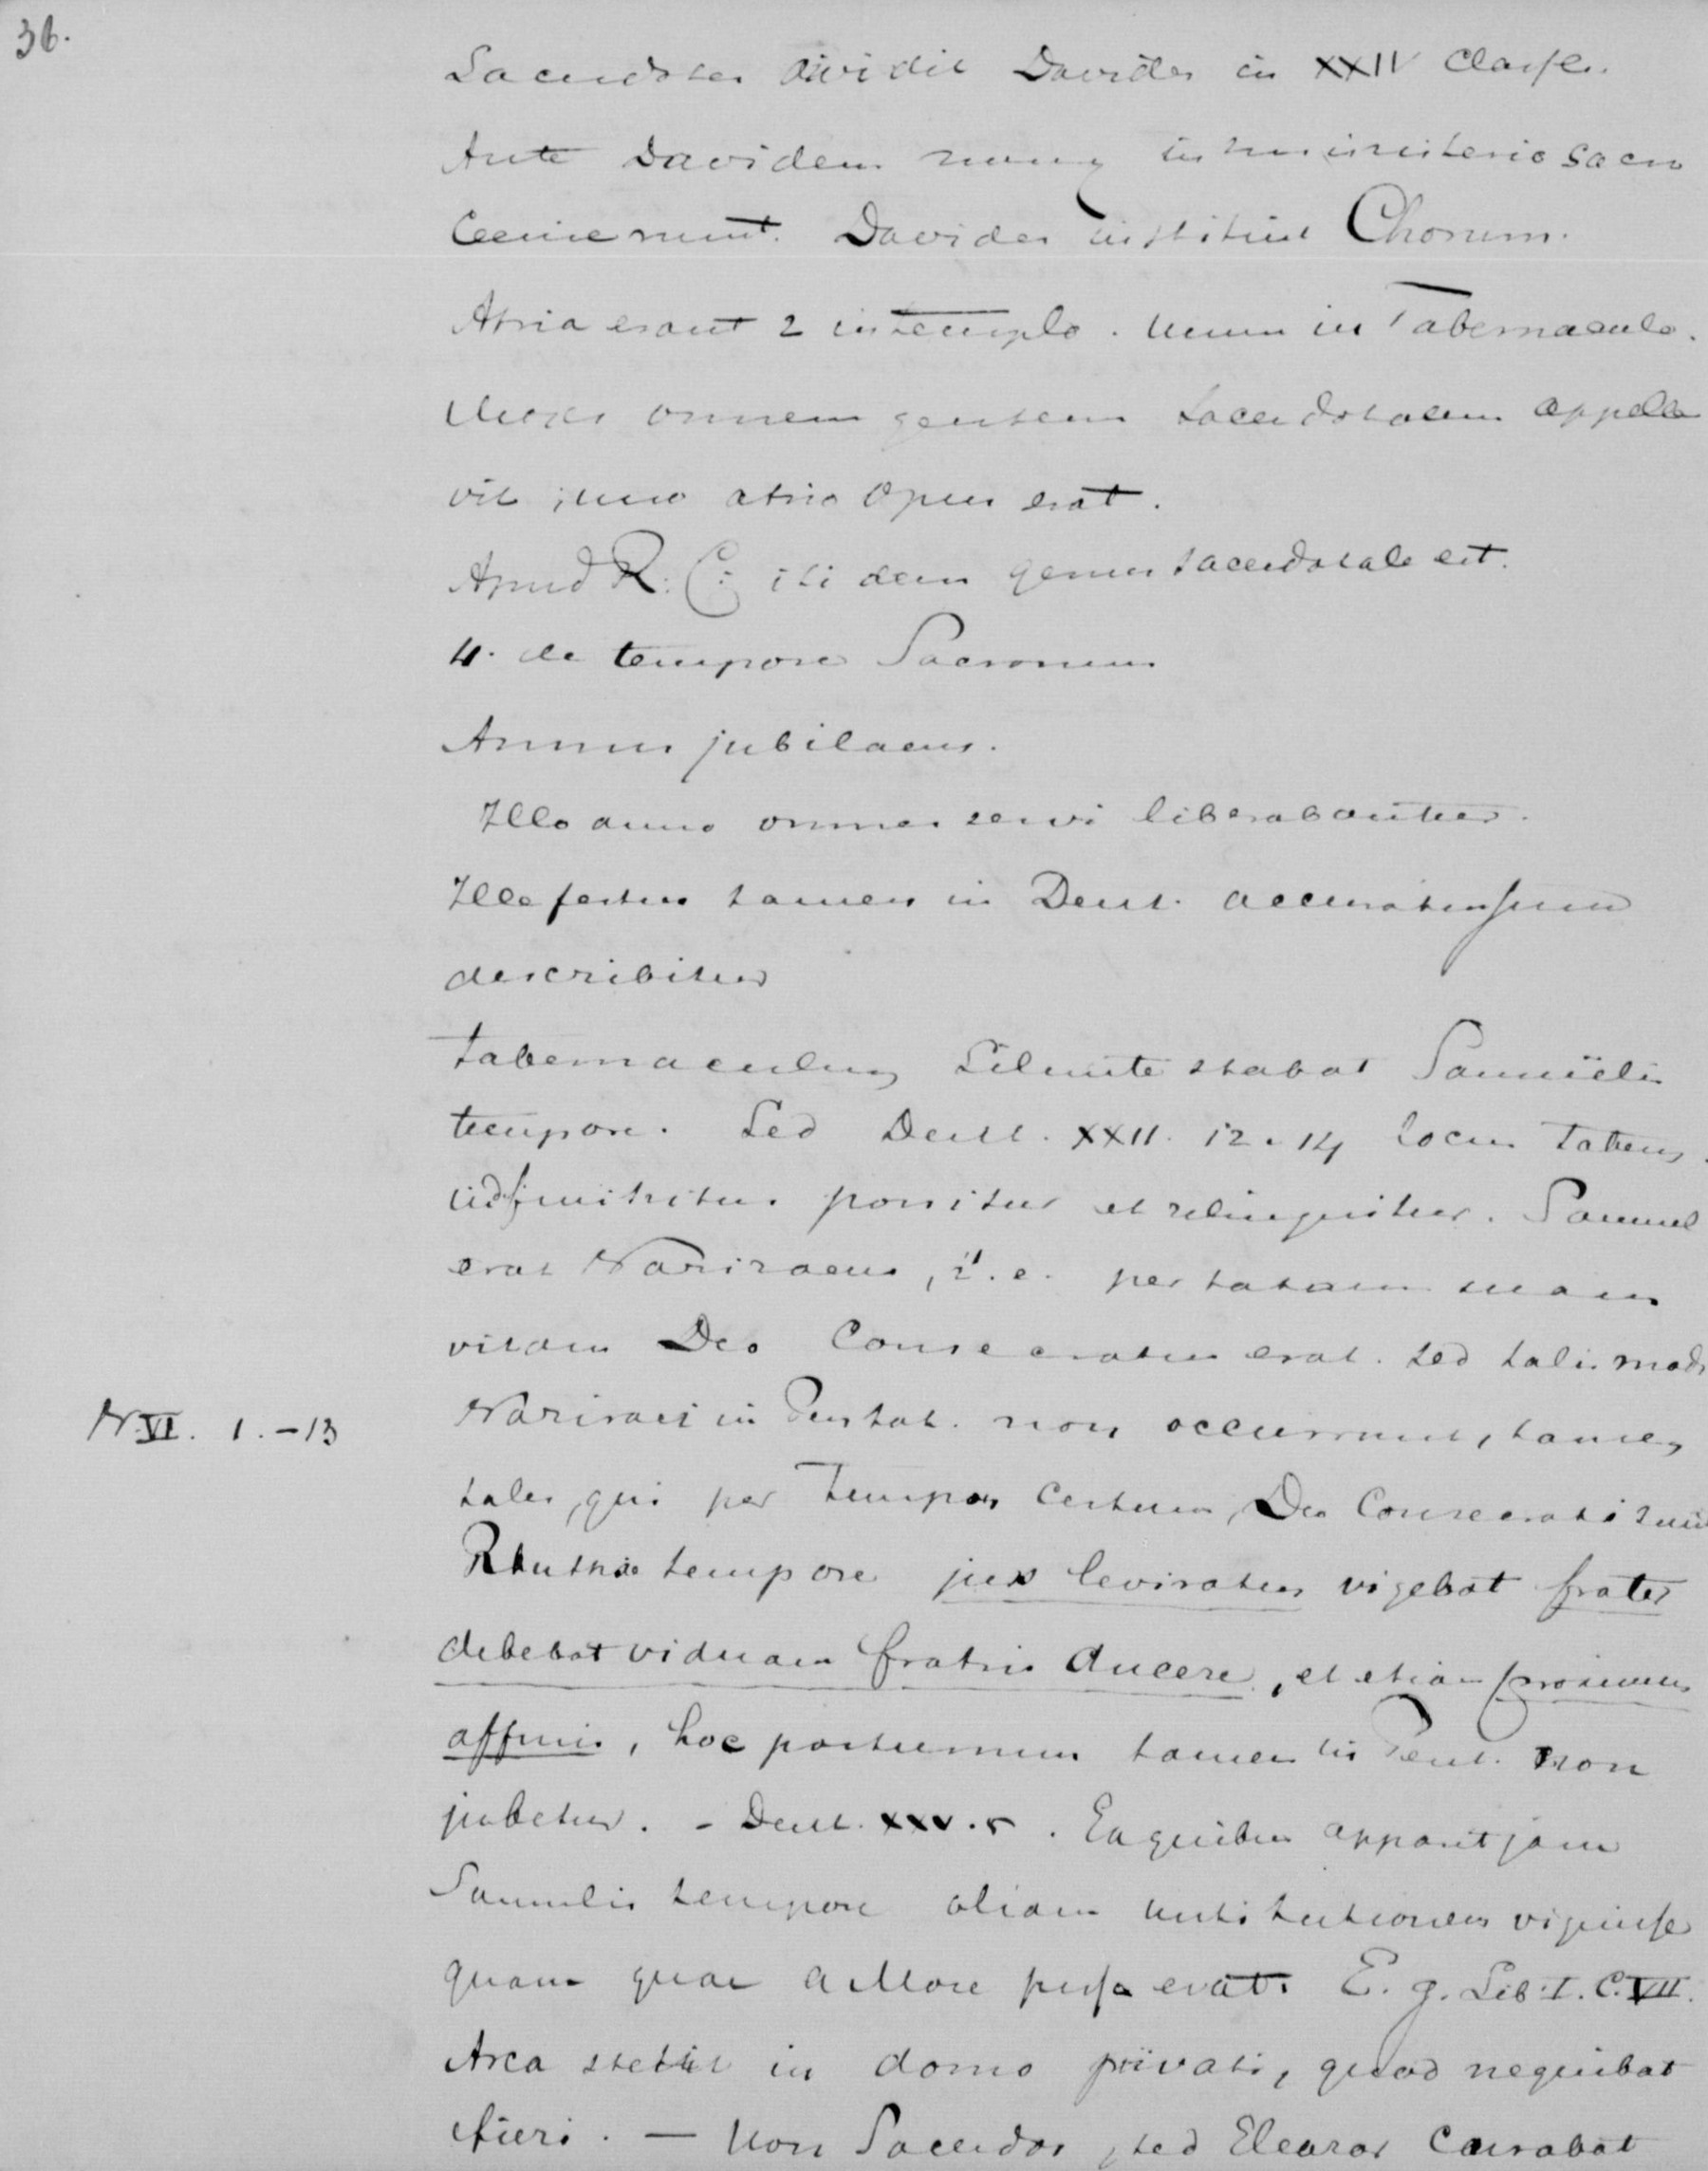 36.
Sacerdotes dividit Davides in XXIV Classes.
Ante Davidem nunq in ministerio sacro
Cecinerunt. Davides instituit Chorum.
Atria erant 2 in templo. Unum in Tabernaculo.
Moses omnem gentem sacerdotalem appella
vit, uno atrio opus erat.
Apud R. C: itidem genus sacerdotale est.
4. de tempore Sacrorum
Annus jubilaeus.
Illo anno omnes servi liberabantur.
Ille festus tamen in Deut. accuratissime
describitur
tabernaculum Silunte stabat Samuëlis
tempore. Sed Deut. XXII. 12. 14 locus Tabern.
indefinitus ponitur et relinquitur. Samuel
erat Nasiraeus, i.e. per totam suam
vitam Deo Consecratus erat. sed talis modi
N. VI. 1. - 13
Nasiraei in Pentat. non occurrunt, tamen
tales, qui per tempus certum, Deo Consecrati sunt
Ruthae tempore jus leviratus vigebat frater
debebat viduam fratris ducere, et etiam proximus
affinis, hoc postremum tamen in Pent. non
jubetur. - Deut. XXV. 5. Ex quibus apparet jam
Samuelis tempore aliam institutionem viguisse
quam quae a Mose jussa erat. E. g. Lib. I. C. VII.
Arca stetit in domo privati, quod nequibat
fieri. — Non Sacerdos, sed Eleazar curabat